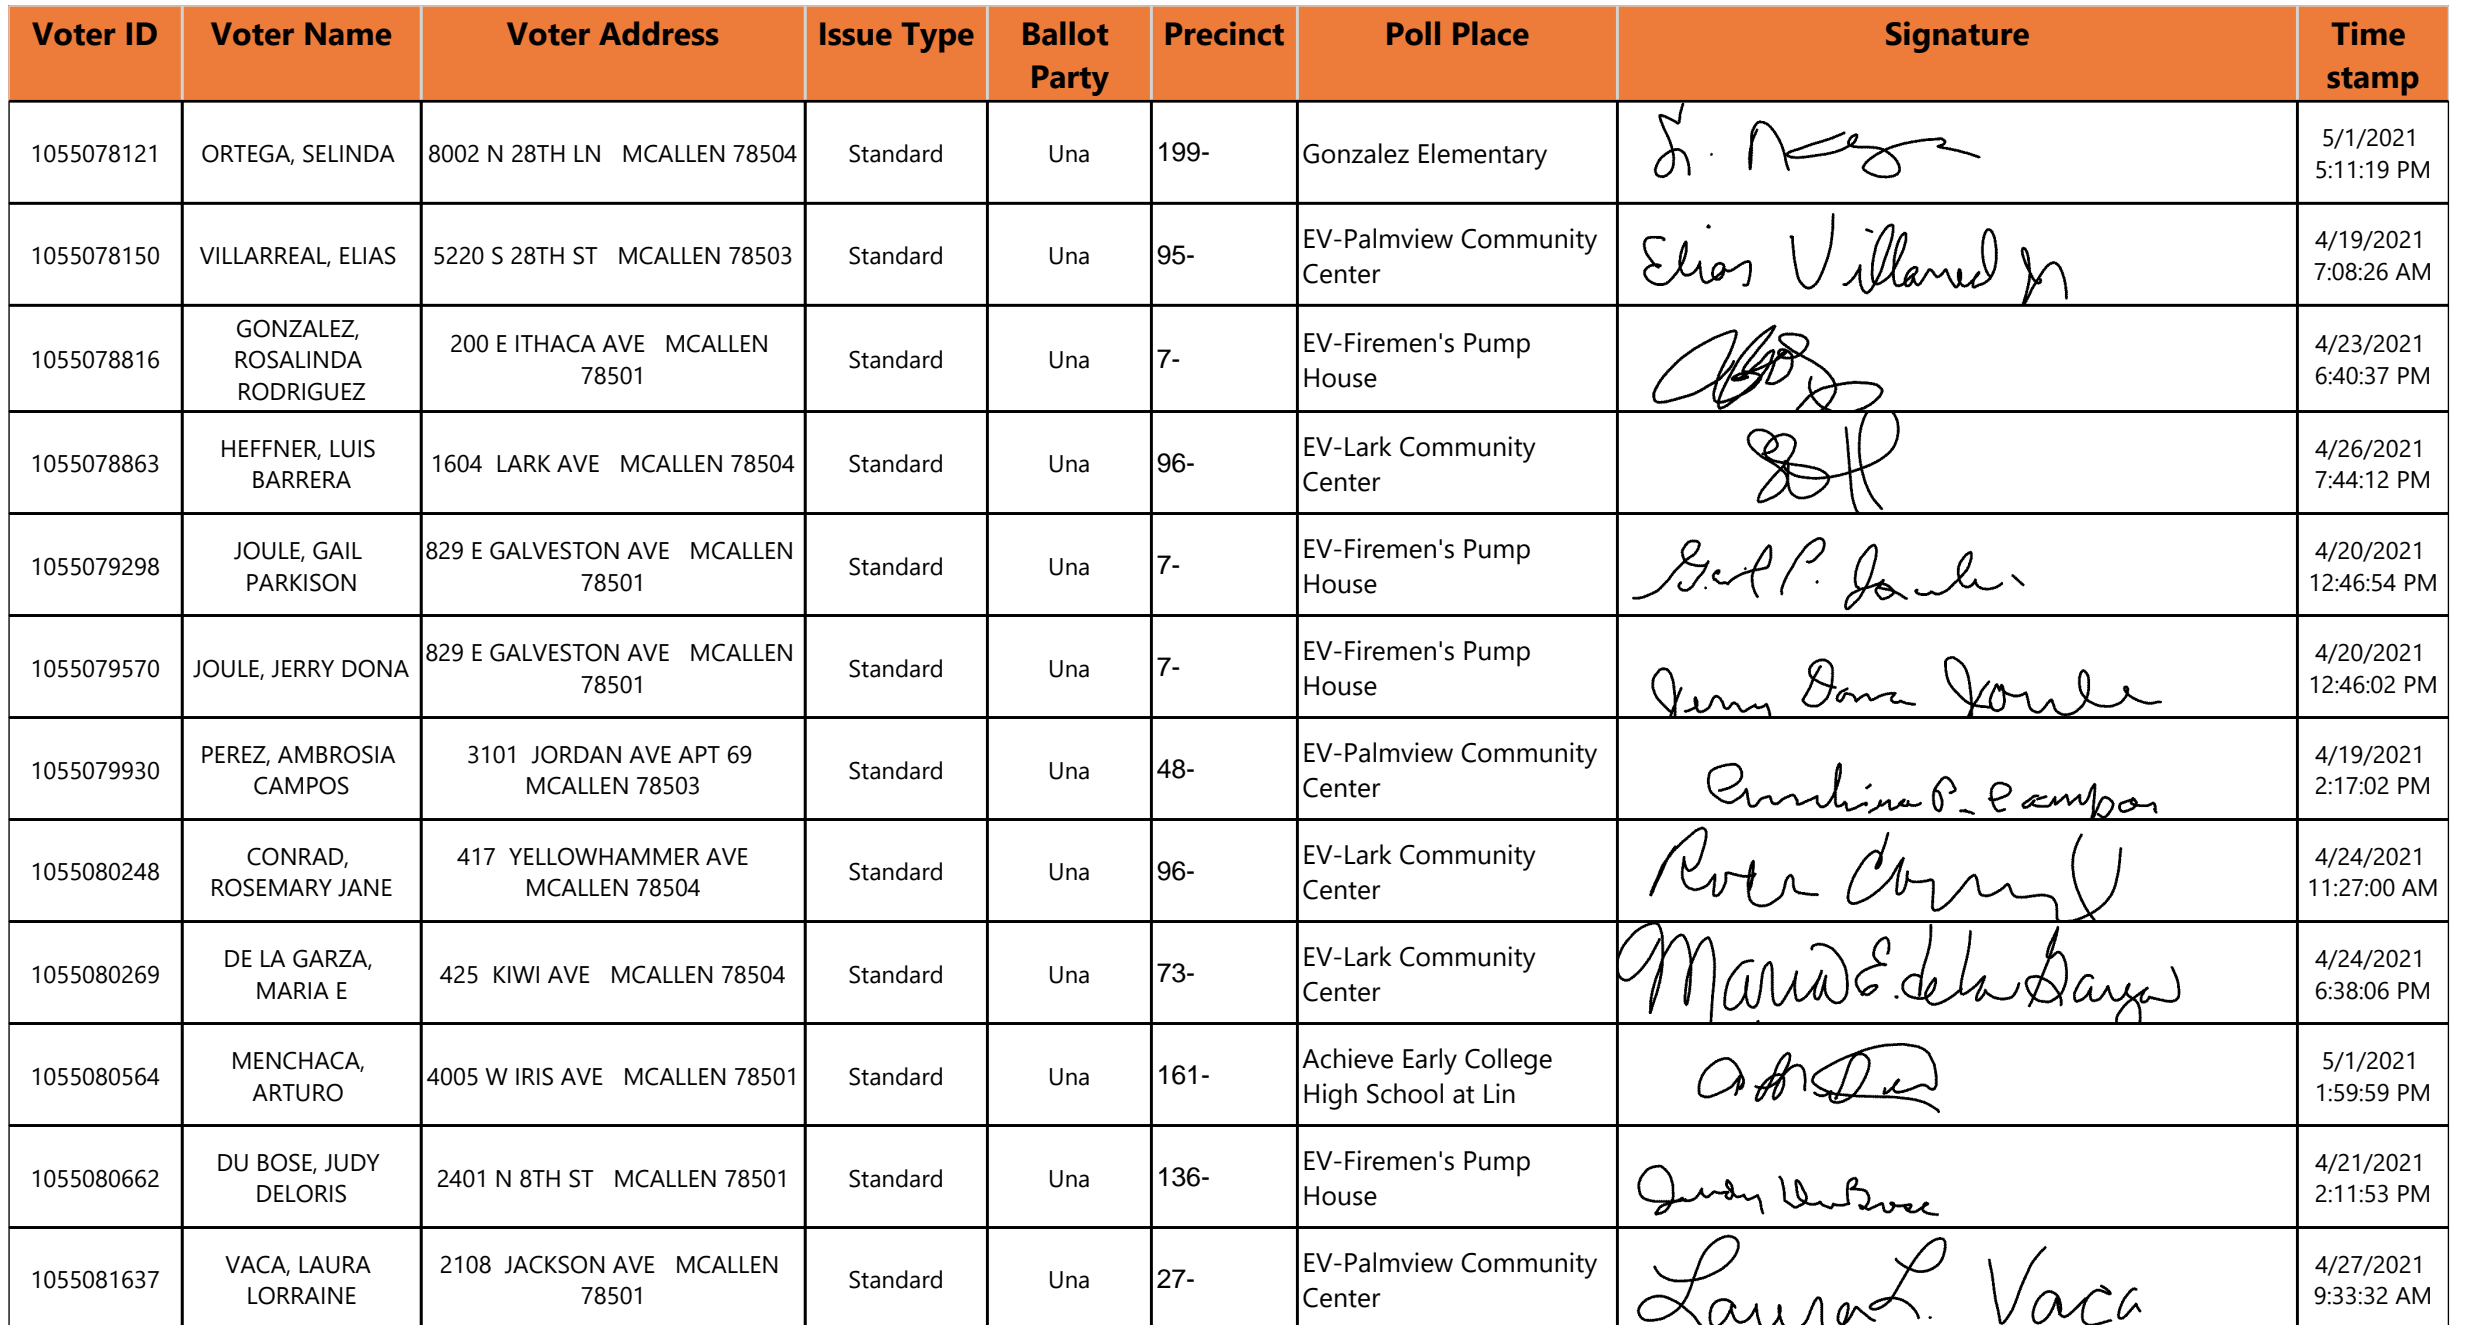 Voter ID Voter Name Voter Address Issue Type Ballot Party Precinct Poll Place Signature Time stamp
1055078121 ORTEGA, SELINDA 8002 N 28TH LN MCALLEN 78504 Standard Una 199- Gonzalez Elementary 5/1/2021 5:11:19 PM
1055078150 VILLARREAL, ELIAS 5220 S 28TH ST MCALLEN 78503 Standard Una 95- EV-Palmview Community Center Elias Villarreal Jr 4/19/2021 7:08:26 AM
1055078816 GONZALEZ, ROSALINDA RODRIGUEZ 200 E ITHACA AVE MCALLEN 78501 Standard Una 7- EV-Firemen's Pump House 4/23/2021 6:40:37 PM
1055078863 HEFFNER, LUIS BARRERA 1604 LARK AVE MCALLEN 78504 Standard Una 96- EV-Lark Community Center 4/26/2021 7:44:12 PM
1055079298 JOULE, GAIL PARKISON 829 E GALVESTON AVE MCALLEN 78501 Standard Una 7- EV-Firemen's Pump House Gail P. Joule 4/20/2021 12:46:54 PM
1055079570 JOULE, JERRY DONA 829 E GALVESTON AVE MCALLEN 78501 Standard Una 7- EV-Firemen's Pump House Jerry Dona Joule 4/20/2021 12:46:02 PM
1055079930 PEREZ, AMBROSIA CAMPOS 3101 JORDAN AVE APT 69 MCALLEN 78503 Standard Una 48- EV-Palmview Community Center P. Campos 4/19/2021 2:17:02 PM
1055080248 CONRAD, ROSEMARY JANE 417 YELLOWHAMMER AVE MCALLEN 78504 Standard Una 96- EV-Lark Community Center 4/24/2021 11:27:00 AM
1055080269 DE LA GARZA, MARIA E 425 KIWI AVE MCALLEN 78504 Standard Una 73- EV-Lark Community Center Maria E. de la Garza 4/24/2021 6:38:06 PM
1055080564 MENCHACA, ARTURO 4005 W IRIS AVE MCALLEN 78501 Standard Una 161- Achieve Early College High School at Lin 5/1/2021 1:59:59 PM
1055080662 DU BOSE, JUDY DELORIS 2401 N 8TH ST MCALLEN 78501 Standard Una 136- EV-Firemen's Pump House Judy DuBose 4/21/2021 2:11:53 PM
1055081637 VACA, LAURA LORRAINE 2108 JACKSON AVE MCALLEN 78501 Standard Una 27- EV-Palmview Community Center Laura L. Vaca 4/27/2021 9:33:32 AM